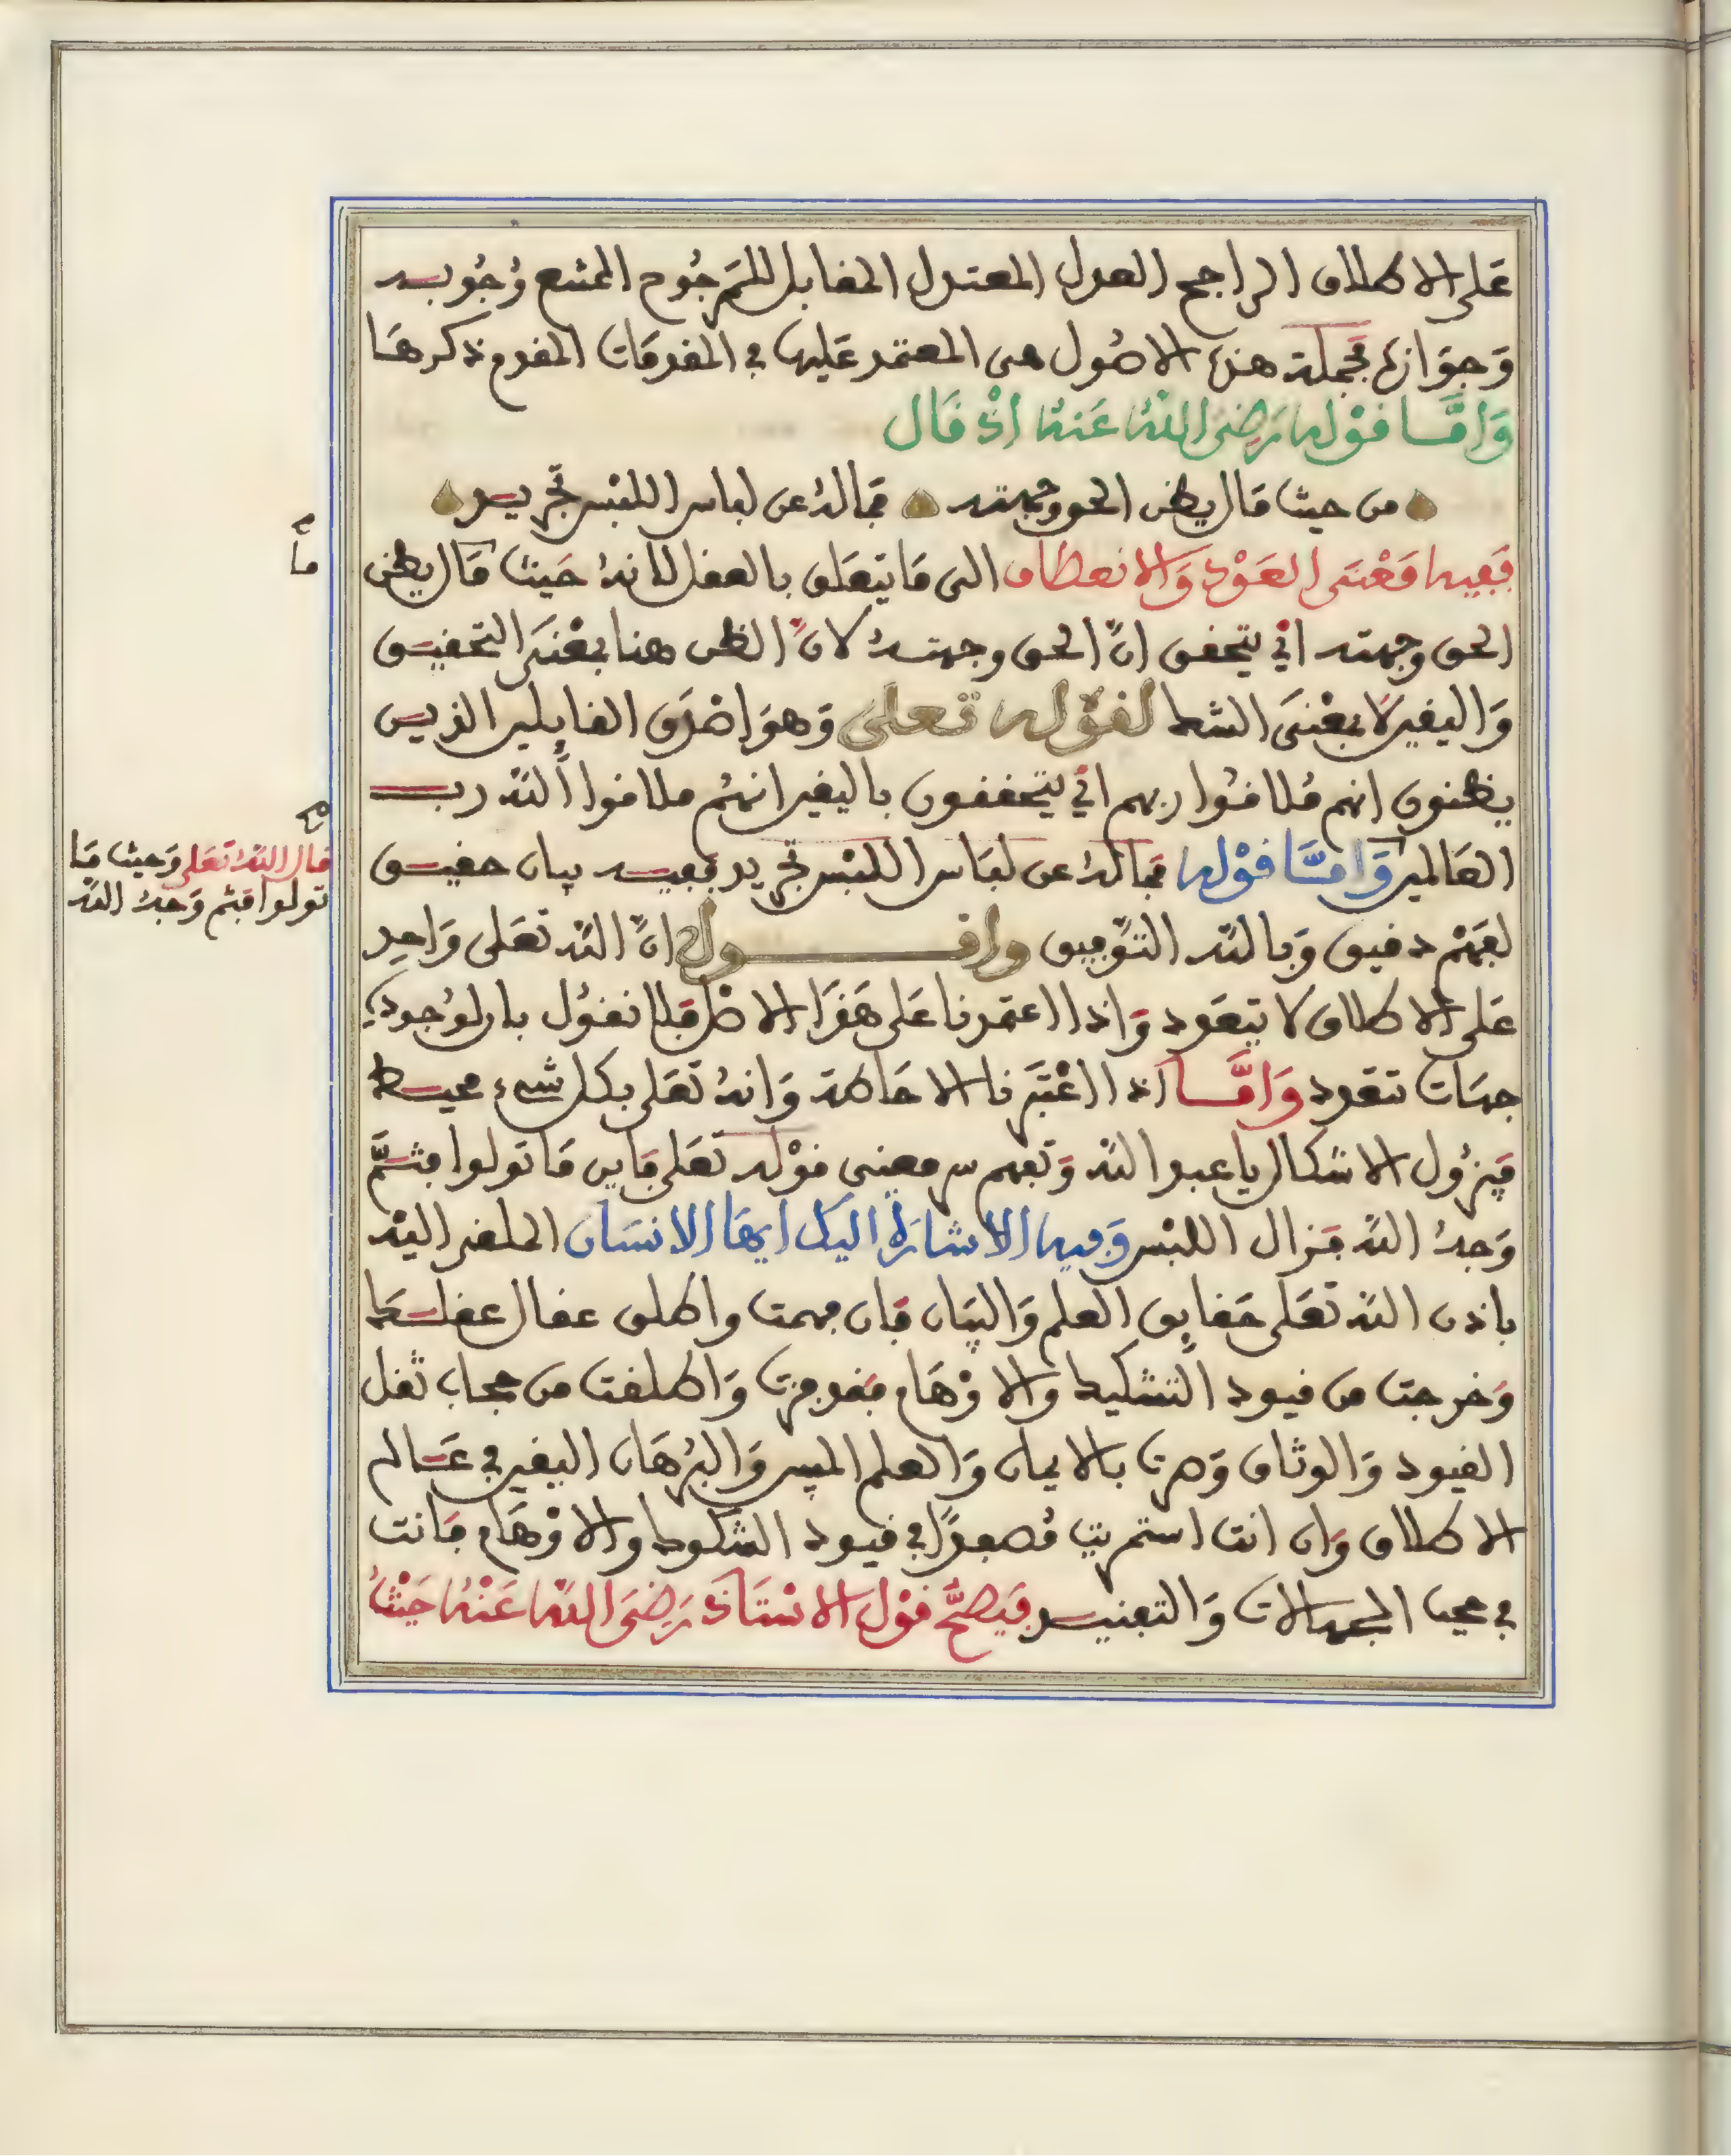 عَلى الاطلاق الراجح العدل المعتدل المقابل للمَرجُوح الممتنع وُجُوبـه
وَجوَازه فجملة هذه الاصُول هى المعتمد عَليها في المقدمَات المقدم ذكرهَا
وَامَّا قوْله رَضِىَ اللهُ عَنهُ اذْ قَال
من حيث مَا ل يظن الحق وجهته فمالهُ عن لباس اللبْس تجريـد
فَفِيه مَعْنَى العَوْد وَالانعطاف الى مَا يتعَلق بالعقل لانهُ حَيث مَا ل يظن
الحق وجهته ايْ يتحقق انّ الحق وجهتـهُ لانّ الظن هنا بمَعْنَى التحقيـق
وَاليقين لا بمَعْنىَ الشك لقوْله تعلى وَهوَ اصْدَق القايلين الذيـن
يظنون انهم مُلاقُوا ربهم ايْ يتحققون باليقين انهُم ملاقوا اللهَ ربـ
العَالمين وَامَّا قوْله فمالهُ عن لبَاس اللبْس تجريد ففيـه بيان حقيـق
لفَهْم دقيق وَبالله التوْفيق واقـــول انّ اللهَ تعَلى وَاحد
عَلى الاطلاق لا يتعَدد وَاذا اعتمدنا عَلى هَذَا الاصْل فلا نقوُل بان لوُجوده
جهَات تتعَدد وَامَّـا اذا اعْتبَرنا الاحَاطة وَانهُ تعَلى بكل شىء محيـط
فيَزوُل الاشكال يا عبد الله وَتفهم سر معنى قوْله تعَلى فَاين مَا تولوا فثـمَّ
وَجهُ الله فزال اللبْس وَفيه الاشارَة اليك ايهَا الانسَان الملقى اليْه
باذن الله تعَلى حَقايق العلم وَالبيَان فَان فهمت واطلق عقال عقلـكَ
وَخرجت من قيود التشكيك والاوْهَام فقد فزت وَاطلقت من حجاب ثقل
القيود وَالوثاق وَصرت بالايمان وَالعلم المبين وَالبُرهَان اليقين في عَـالم
الاطلاق وَان انت استمريت مُصفدًا في قيود الشكوك والاوْهَام فَانت
في محيـ الجهالات وَالتفنيـد فَيَصحُّ قوْل الاسْتَاذ رَضِىَ اللهُ عَنْهُ حَيْثُ
مـا
قال اللهُ تعَلى وَحيث مَا
تولوا فثم وَجهُ الله